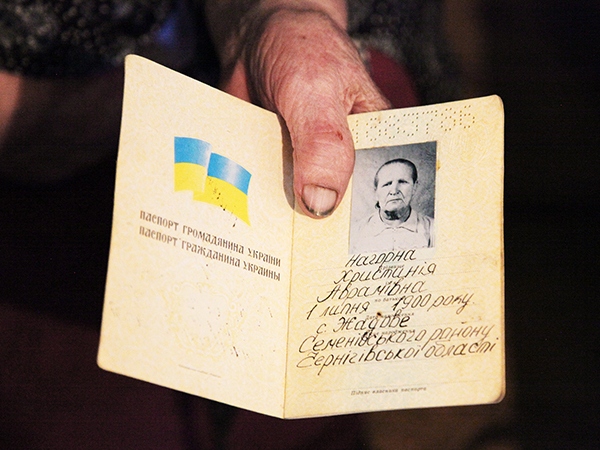 ПАСПОРТ ГРОМАДЯНИНА УКРАЇНИ
ПАСПОРТ ГРАЖДАНИНА УКРАИНЫ
Нагорна
Христанія
Аврамівна
1 липня 1900 року
с Жадове
Семенівського району
Чернігівської області
Підпис власника паспорта